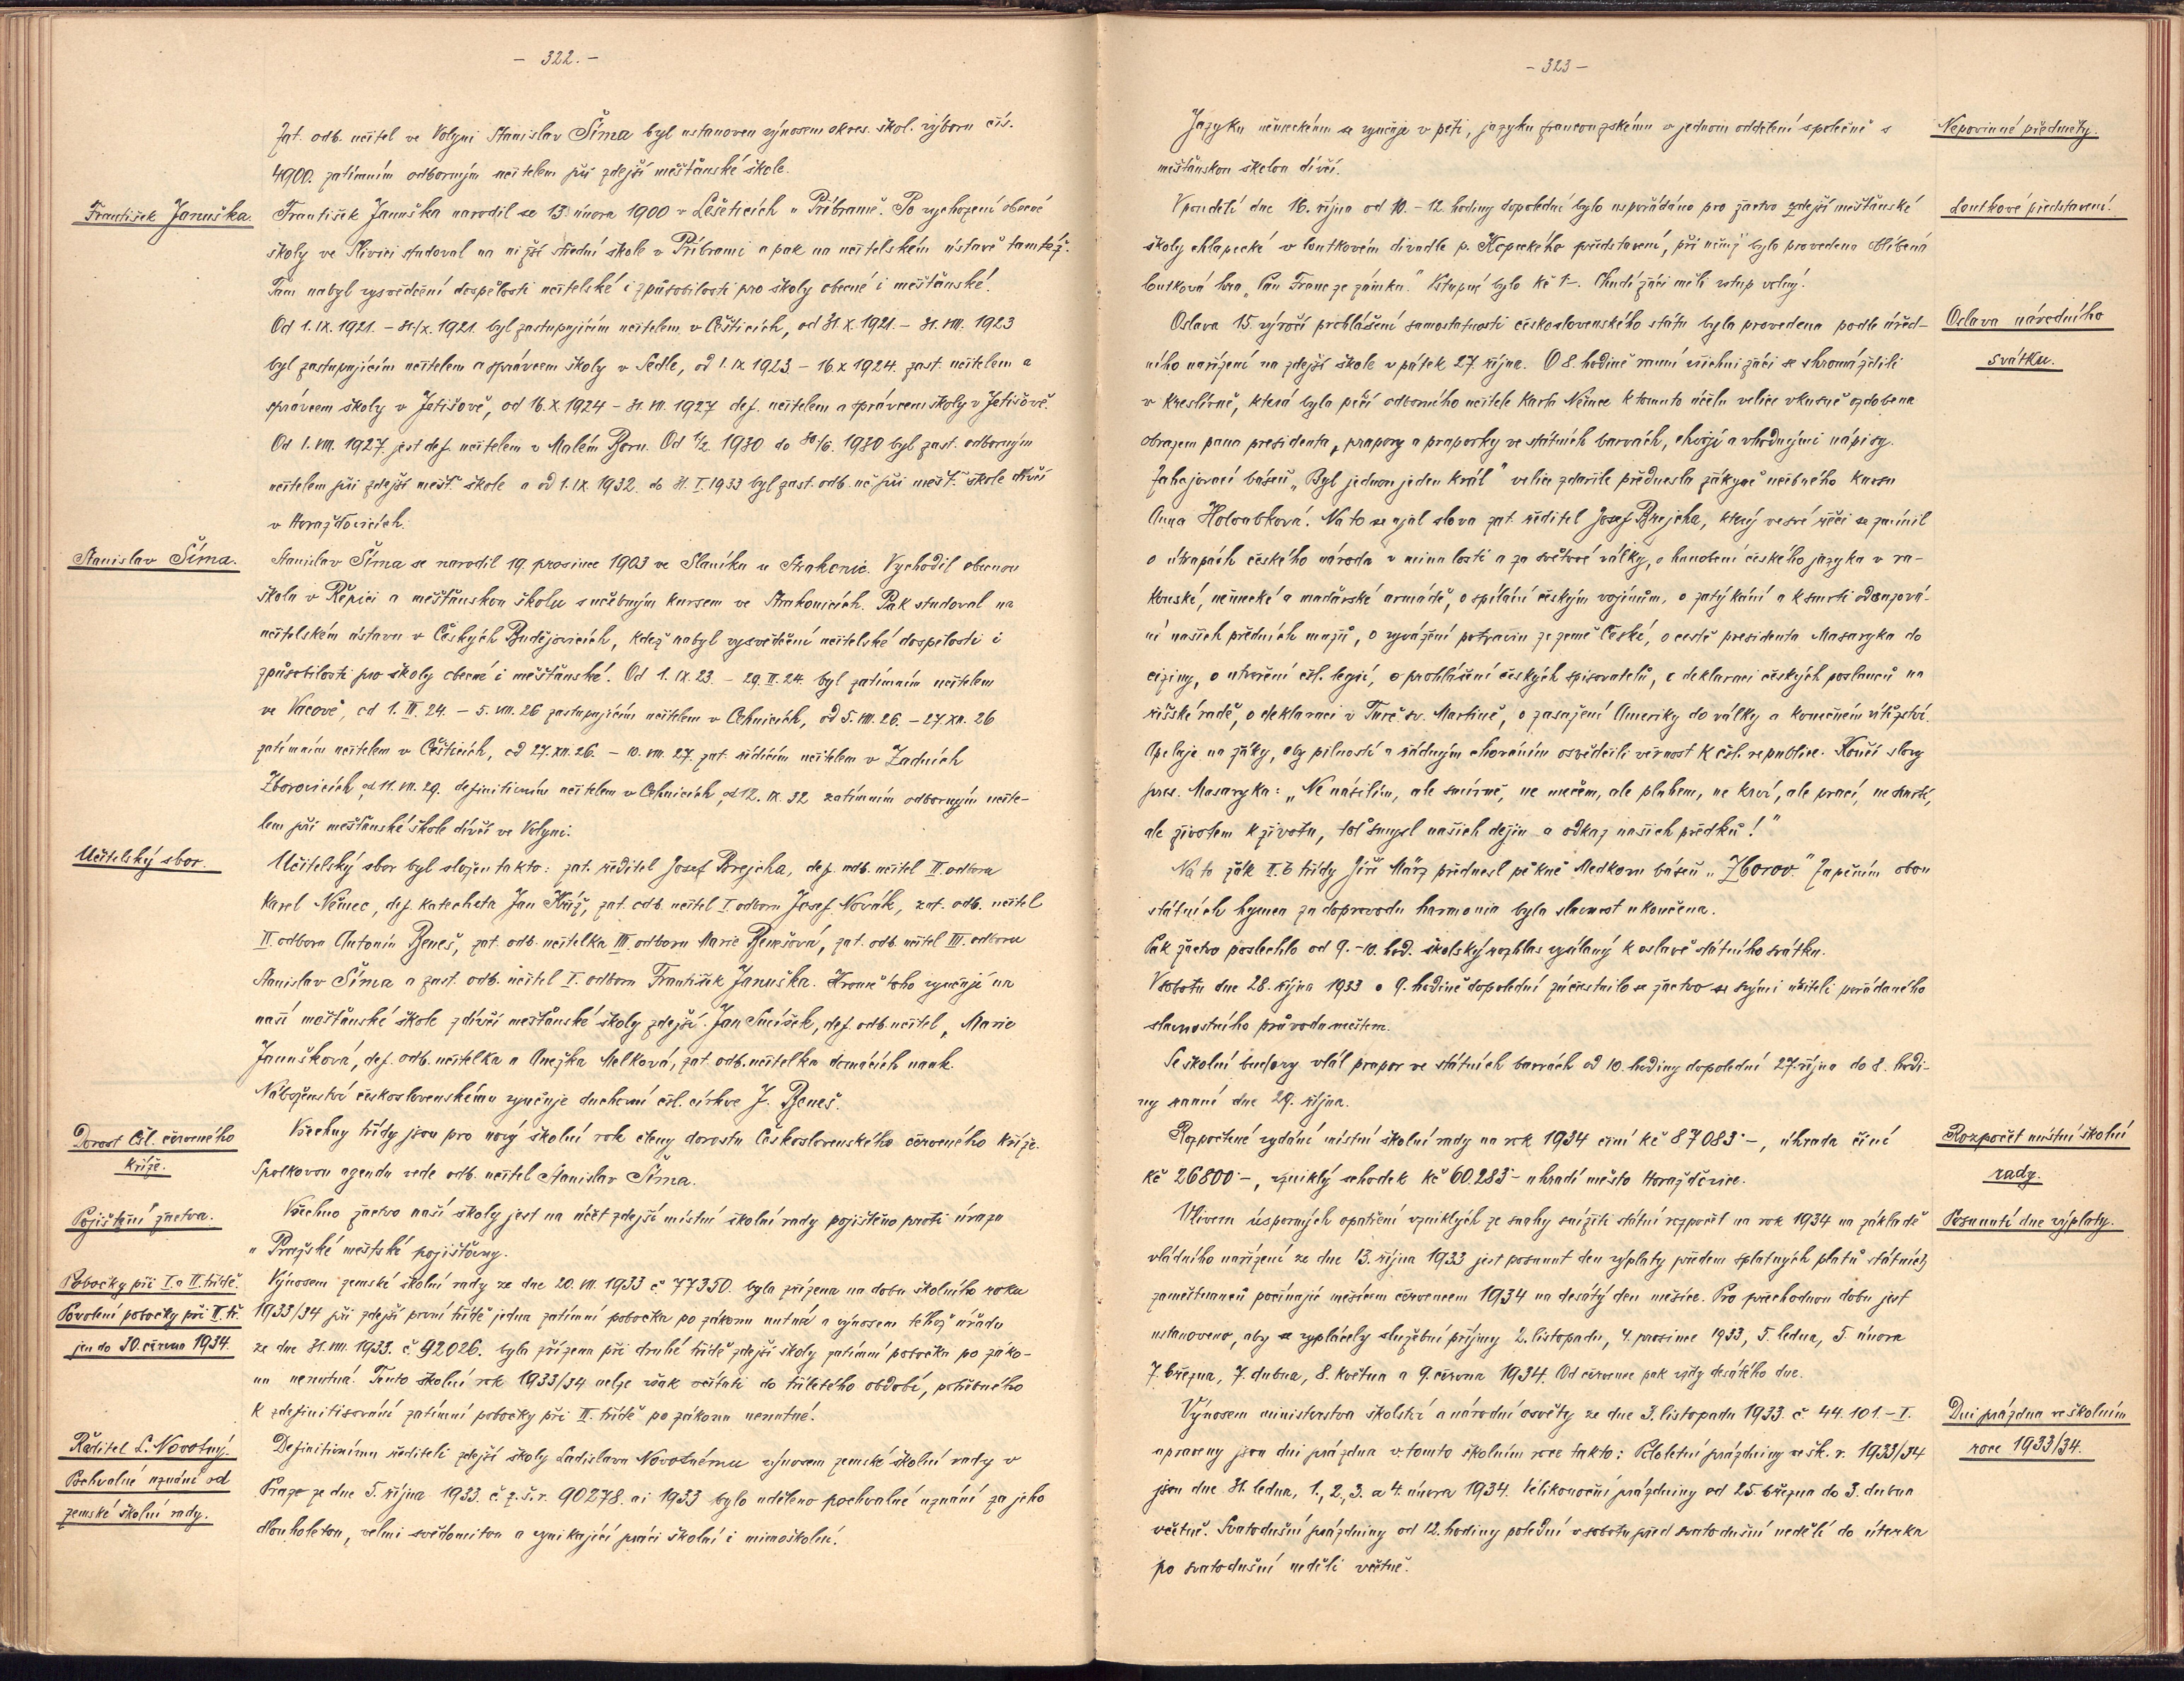 - 322. -
Zat. odb. učitel ve Volyni Stanislav Šíma byl ustanoven výnosem okres. škol. výboru čís.
4900. zatímním odborným učitelem při zdejší měšťanské škole.
František Januška.
František Januška narodil se 13. února 1900 v Lešeticích u Příbramě. Po vychození obecné
školy ve Slivici studoval na nižší střední škole v Příbrami a pak na učitelském ústavě tamtéž.
Tam nabyl vysvědčení dospělosti učitelské i způsobilosti pro školy obecné i měšťanské.
Od 1. IX. 1921. - 31./X. 1921. byl zastupujícím učitelem v Češticích, od 31. X. 1921. - 31. VIII. 1923
byl zastupujícím učitelem a správcem školy v Sedle, od 1. IX 1923 - 16. X 1924. zast. učitelem a
správcem školy v Jetišově, od 16. X 1924 - 31. VII. 1927 def. učitelem a správcem školy v Jetišově.
Od 1. VIII. 1927. jest def. učitelem v Malém Boru. Od 1/2. 1930 do 30/6. 1930 byl zast. odborným
učitelem při zdejší měšť. škole a od 1. IX. 1932. do 31. I. 1933 byl zast. odb. uč. při měšť. škole dívčí
v Horažďovicích.
Stanislav Šíma.
Stanislav Šíma se narodil 19. prosince 1903 ve Slaníku u Strakonic. Vychodil obecnou
školu v Řepici a měšťanskou školu s učebným kursem ve Strakonicích. Pak studoval na
učitelském ústavu v Českých Budějovicích, kdež nabyl vysvědčení učitelské dospělosti i
způsobilosti pro školy obecné i měšťanské. Od 1. IX. 23. - 29. II. 24. byl zatímním učitelem
ve Vacově, od 1. III. 24. - 5. VIII. 26 zastupujícím učitelem v Cehnicích, od 5. VIII. 26. - 27. XII. 26
zatímním učitelem v Češticích, od 27. XII. 26. - 10. VII. 27. zat. řídícím učitelem v Zadních
Zborovicích, od 11. VII. 29. definitivním učitelem v Cehnicích, od 12. IX. 32 zatímním odborným učite-
lem při měšťanské škole dívčí ve Volyni.
Učitelský sbor.
Učitelský sbor byl složen takto: zat. ředitel Josef Brejcha, def. odb. učitel II. odboru
Karel Němec, def. katecheta Jan Kříž, zat. odb. učitel I. odboru Josef Novák, zat. odb. učitel
II. odboru Antonín Beneš, zat. odb. učitelka III. odboru Marie Benešová, zat. odb. učitel III. odboru
Stanislav Šíma a zast. odb. učitel I. odboru František Januška. Kromě toho vyučují na
naší měšťanské škole z dívčí měšťanské školy zdejší: Jan Smíšek, def. odb. učitel, Marie
Janušková, def. odb. učitelka a Anežka Melková, zat. odb. učitelka domácích nauk.
Náboženství československému vyučuje duchovní čsl. církve J. Beneš.
Dorost Čsl. červeného
kříže.
Všechny třídy jsou pro nový školní rok členy dorostu Československého červeného kříže.
Spolkovou agendu vede odb. učitel Stanislav Šíma.
Pojištění žactva.
Všechno žactvo naší školy jest na účet zdejší místní školní rady pojištěno proti úrazu
u Pražské městské pojišťovny.
Pobočky při I. a II. třídě.
Povolení pobočky při II. tř.
jen do 30. června 1934.
Výnosem zemské školní rady ze dne 20. VII. 1933 č. 77350. byla zřízena na dobu školního roku
1933/34 při zdejší první třídě jedna zatímní pobočka po zákonu nutná a výnosem téhož úřadu
ze dne 31. VIII. 1933. č. 92026. byla zřízena při druhé třídě zdejší školy zatímní pobočka po záko-
nu nenutná. Tento školní rok 1933/34 nelze však včítati do tříletého období, potřebného
k zdefinitisování zatímní pobočky při II. třídě po zákonu nenutné.
Ředitel L. Novotný.
Pochvalné uznání od
zemské školní rady.
Definitivnímu řediteli zdejší školy Ladislavu Novotnému výnosem zemské školní rady v
Praze ze dne 5. října 1933. č. z. š. r. 90278. ai 1933 bylo uděleno pochvalné uznání za jeho
dlouholetou, velmi svědomitou a vynikající práci školní i mimoškolní.
- 323 -
Nepovinné předměty.
Jazyku německému se vyučuje v pěti, jazyku francouzskému v jednom oddělení společně s
měšťanskou školou dívčí.
Loutkové představení.
V pondělí dne 16. října od 10. - 12. hodiny dopolední bylo uspořádáno pro žactvo zdejší měšťanské
školy chlapecké v loutkovém divadle p. Kopeckého představení, při němž byla provedena oblíbená
loutková hra „Pan Franc ze zámku." Vstupné bylo Kč 1-. Chudí žáci měli vstup volný.
Oslava národního
svátku.
Oslava 15. výročí prohlášení samostatnosti československého státu byla provedena podle úřed-
ního nařízení na zdejší škole v pátek 27. října. O 8. hodině ranní všichni žáci se shromáždili
v kreslírně, která byla péčí odborného učitele Karla Němce k tomuto účelu velice vkusně ozdobena
obrazem pana presidenta, prapory a praporky ve státních barvách, chvojí a vhodnými nápisy.
Zahajovací báseň „Byl jednou jeden král" velice zdařile přednesla žákyně učebného kursu
Anna Holoubková. Na to se ujal slova zat. ředitel Josef Brejcha, který ve své řeči se zmínil
o útrapách českého národa v minulosti a za světové války, o hanobení českého jazyka v ra-
kouské, německé a maďarské armádě, o spílání českým vojínům, o zatýkání a k smrti odsuzová-
ní našich předních mužů, o vyvážení potravin ze země České, o cestě presidenta Masaryka do
ciziny, o utvoření čsl. legií, o prohlášení českých spisovatelů, o deklaraci českých poslanců na
říšské radě, o deklaraci v Turč. sv. Martině, o zasažení Ameriky do války a konečném vítězství.
Apeluje na žáky, aby pilností a řádným chováním osvědčili věrnost k čsl. republice. Končí slovy
pres. Masaryka: „Ne násilím, ale smírně, ne mečem, ale pluhem, ne krví, ale prací, ne smrtí,
ale životem k životu, toť smysl našich dějin a odkaz našich předků!"
Na to žák II. b třídy Jiří März přednesl pěkně Medkovu báseň „Zborov." Zapěním obou
státních hymen za doprovodu harmonia byla slavnost ukončena.
Pak žactvo poslechlo od 9. - 10. hod. školský rozhlas vysílaný k oslavě státního svátku.
V sobotu dne 28. října 1933 o 9. hodině dopolední zúčastnilo se žactvo se svými učiteli pořádaného
slavnostního průvodu městem.
Se školní budovy vlál prapor ve státních barvách od 10. hodiny dopolední 27. října do 8. hodi-
ny ranní dne 29. října.
Rozpočet místní školní
rady.
Rozpočtené vydání místní školní rady na rok 1934 činí Kč 87083·-, úhrada činí
Kč 26800·-, vzniklý schodek Kč 60.283·- uhradí město Horažďovice.
Posunutí dne výplaty.
Vlivem úsporných opatření vzniklých ze snahy snížiti státní rozpočet na rok 1934 na základě
vládního nařízení ze dne 13. října 1933 jest posunut den výplaty předem splatných platů státních
zaměstnanců počínajíc měsícem červencem 1934 na desátý den měsíce. Pro přechodnou dobu jest
ustanoveno, aby se vyplácely služební příjmy 2. listopadu, 4. prosince 1933, 5. ledna, 5. února
7. března, 7. dubna, 8. května a 9. června 1934. Od července pak vždy desátého dne.
Dni prázdna ve školním
roce 1933/34.
Výnosem ministerstva školství a národní osvěty ze dne 3. listopadu 1933. č. 44.101.-I.
upraveny jsou dni prázdna v tomto školním roce takto: Pololetní prázdniny ve šk. r. 1933/34
jsou dne 31. ledna, 1., 2., 3. a 4. února 1934. Velikonoční prázdniny od 25. března do 3. dubna
včetně. Svatodušní prázdniny od 12. hodiny polední v sobotu před svatodušní nedělí do úterka
po svatodušní neděli včetně.